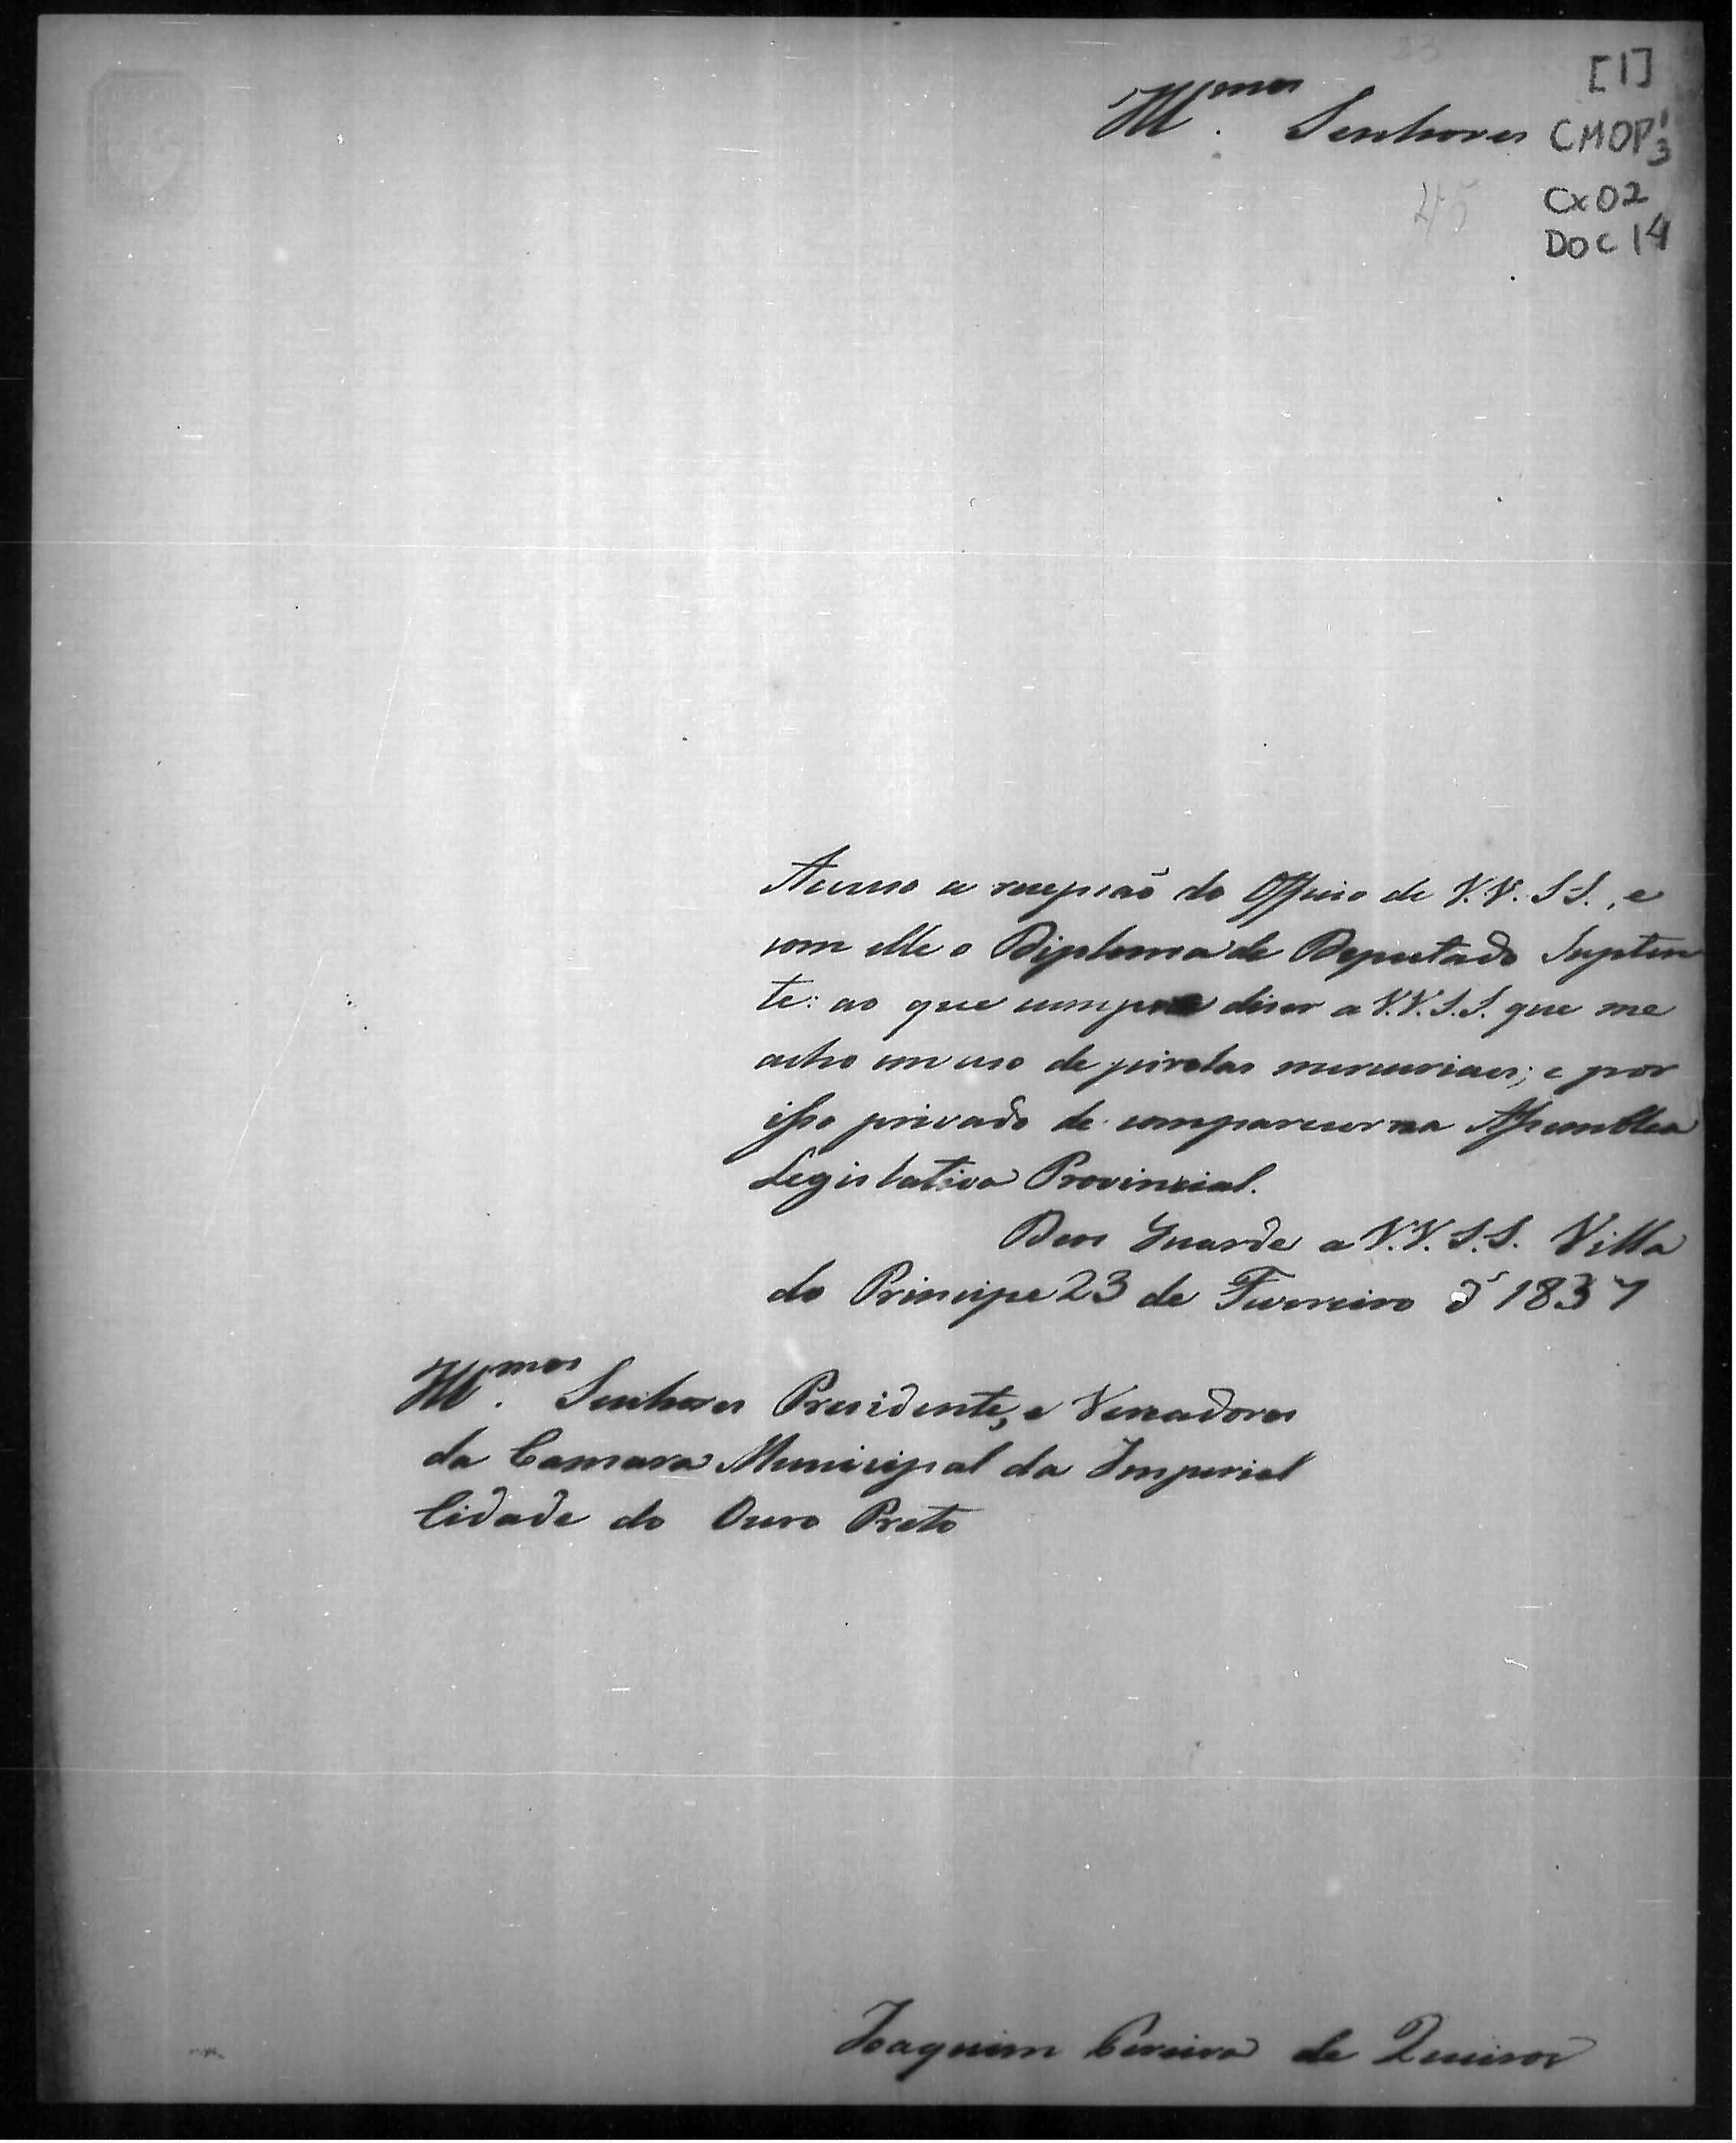 [1]
Illmos. Senhores
CMOP 1 3
45
Cx 02
DOC 14
Accuso a recepsaõ do Officio de V.V. S S., e
com elle o Diploma de Deputado Suplen
te: ao que cumpre diser a V.V. S.S. que me
acho em uso de pirolas mercuriaes; e por
isso privado de comparecer na Assemblea
Legislativa Provincial.
Deos Guarde a V.V. S.S. Villa
do Principe 23 de Fevereiro d' 1837
Illmos. Senhores Presidente, e Vereadores
da Camara Municipal da Imperial
Cidade do Ouro Preto
Joaquim Pereira de Queiros